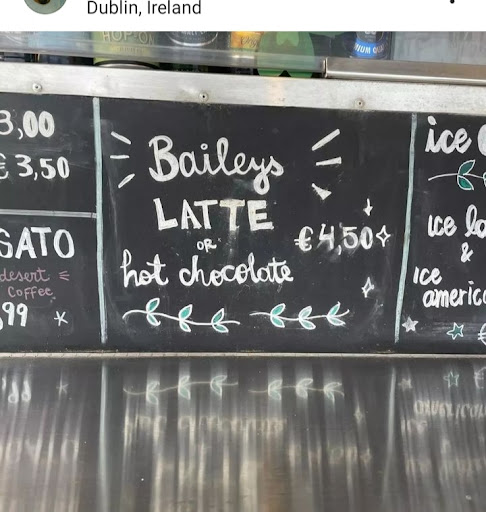 Dublin, Ireland
HOP-ON
3,00
€ 3,50
SATO
desert
Coffee
,99
Baileys
LATTE
OR
hot chocolate
€4,50
ice
ice
&
ice